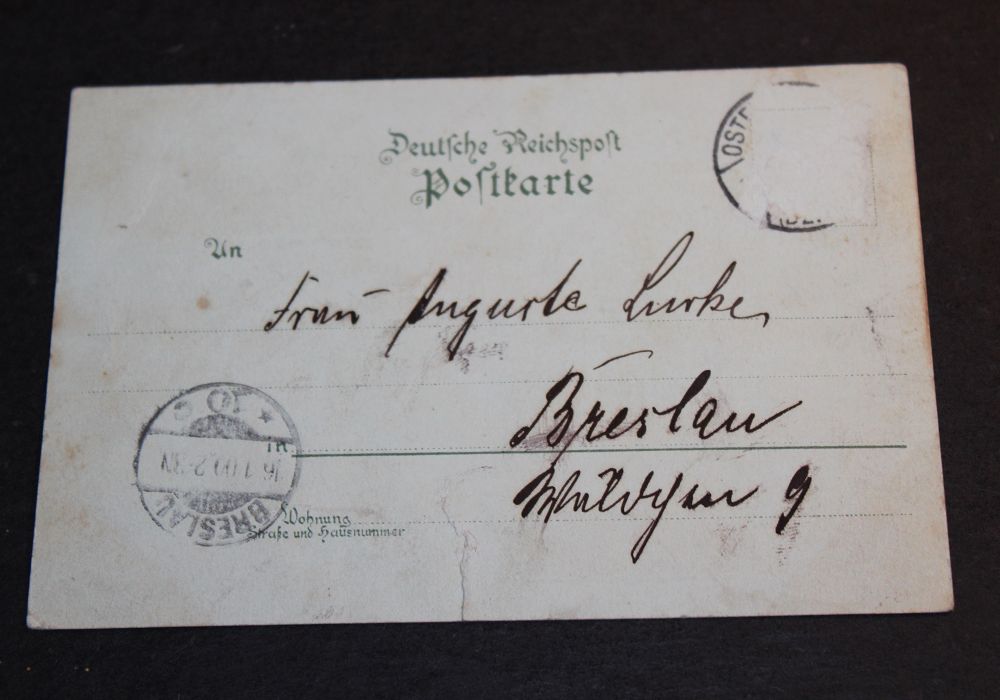 Deutsche Reichspost
Postkarte
OST
An
Frau Auguste Lurke
Breslau
in
Wäldchen 9
BRESLAU
Wohnung
Straße und Hausnummer